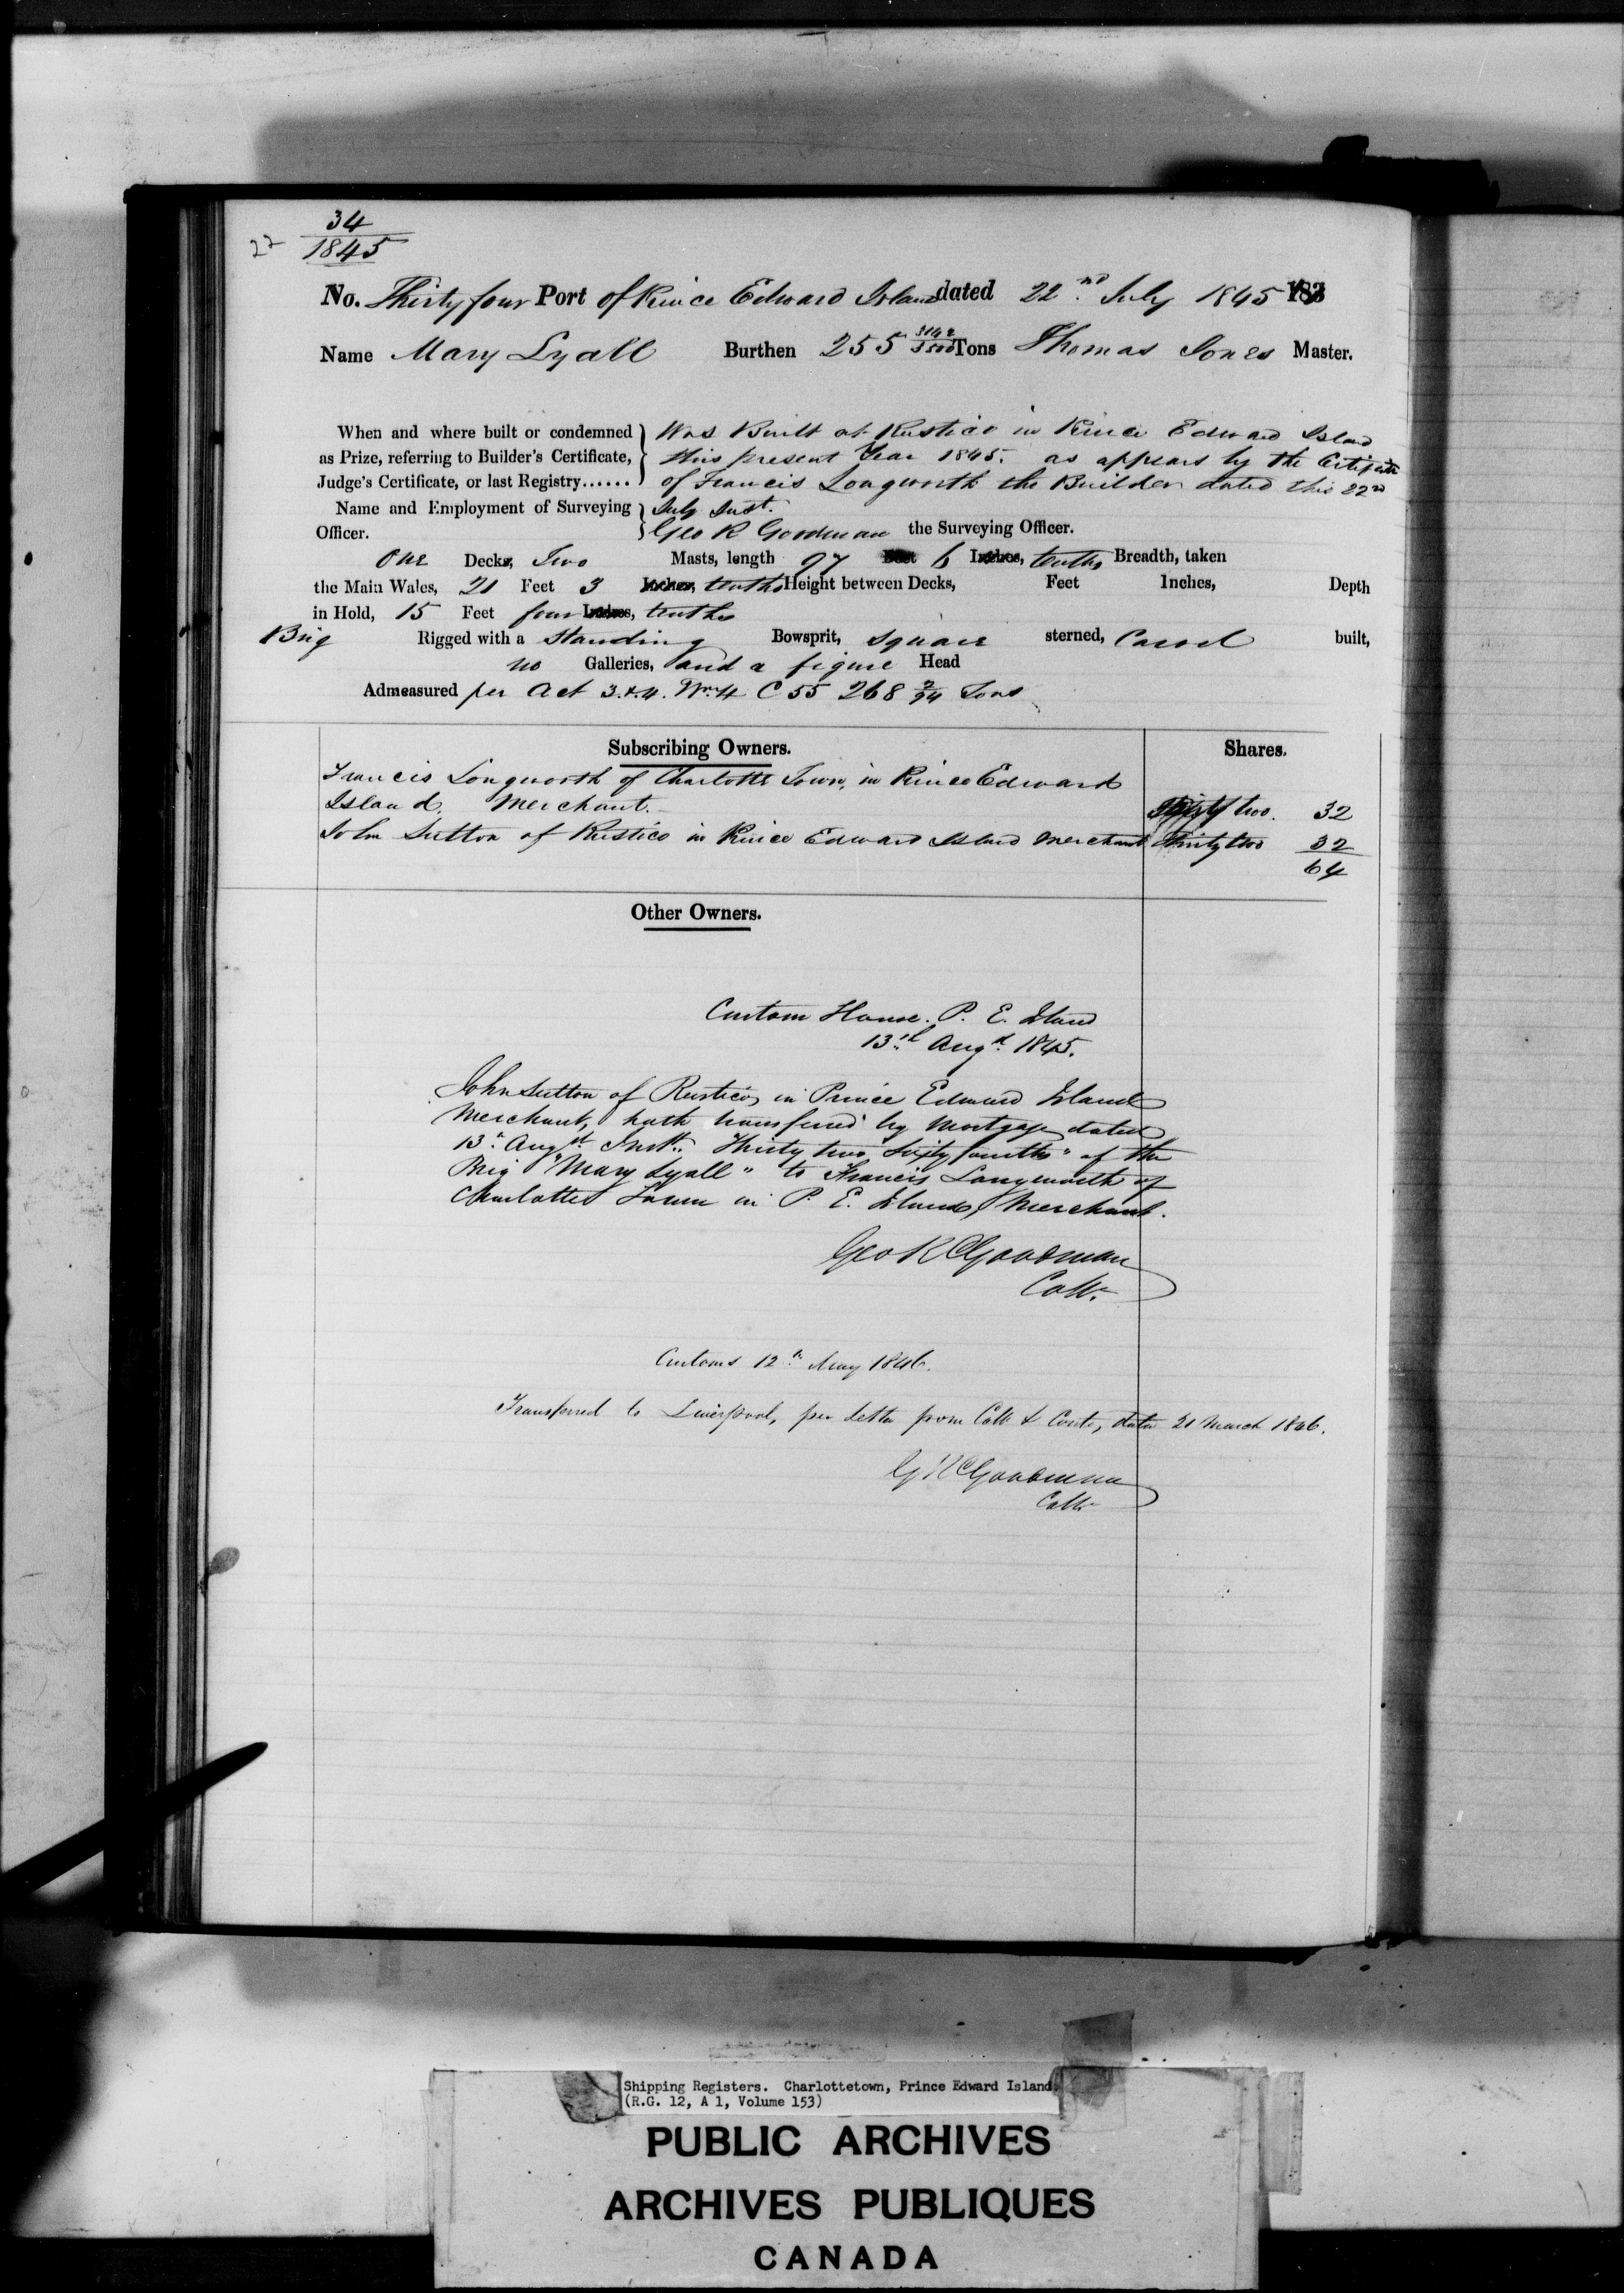 34
27 1845
No. Thirty four Port of Prince Edward Island dated 22nd July 1845 183
Name Mary Lyall Burthen 255 3142/3500 Tons Thomas Jones Master.
When and where built or condemned Was Built at Rustico in Prince Edward Island
as Prize, referring to Builder's Certificate, this present Year 1845. as appears by the Certificate
Judge's Certificate, or last Registry...... of Francis Longworth the Builder dated this 22nd
Name and Employment of Surveying July Inst.
Officer. Geo R Goodman the Surveying Officer.
One Decks, Two Masts, length 97 Feet 6 Inches, tenths Breadth, taken
the Main Wales, 21 Feet 3 Inches, tenths Height between Decks, Feet Inches, Depth
in Hold, 15 Feet four Inches, tenths
Brig Rigged with a Standing Bowsprit, Square sterned, Carvel built,
no Galleries, and a figure Head
Admeasured per Act 3.&4. Wm. 4 C 55 268 2/94 Tons
Subscribing Owners. Shares.
Francis Longworth of Charlotte Town, in Prince Edward
Island, Merchant. Thirty two. 32
John Sutton of Rustico in Prince Edward Island Merchant Thirty two 32
64
Other Owners.
Custom House. P. E. Island
13th Augt. 1845.
John Sutton of Rustico, in Prince Edward Island
Merchant, hath transferred by Mortgage dated
13th Augst Inst. Thirty two Sixty fourths" of the
Brig "Mary Lyall" to Francis Longworth of
Charlotte Town in P. E. Island, Merchant.
Geo R Goodman
Collr.
Customs 12th May 1846.
Transferred to Liverpool, per letter from Collr & Contr, date 21 March 1846.
G R Goodman
Collr
Shipping Registers. Charlottetown, Prince Edward Island.
(R.G. 12, A 1, Volume 153)
PUBLIC ARCHIVES
ARCHIVES PUBLIQUES
CANADA